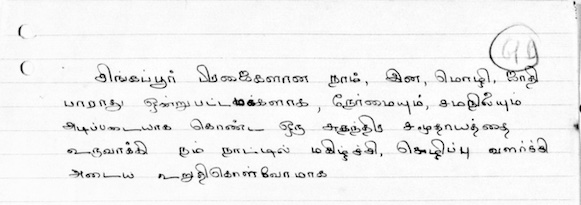 சிங்கப்பூர் பிரஜைகளான நாம், இன, மொழி, ஜாதி
பாராது ஒன்றுபட்ட மக்களாக, நேர்மையும், சமநிலையும்
அடிப்படையாக கொண்ட ஒரு சுதந்திர சமுதாயத்தை
உருவாக்கி நம் நாட்டில் மகிழ்ச்சி, செழிப்பு வளர்ச்சி
அடைய உறுதிகொள்வோமாக